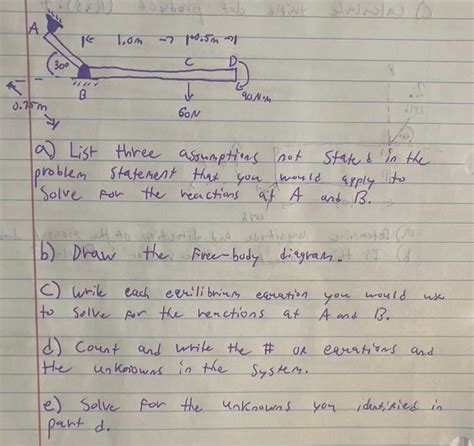 A
1.0m
0.5m
C
D
30°
B
90N·m
0.75m
60N
a) List three assumptions not stated in the
problem statement that you would apply to
solve for the reactions at A and B.
b) Draw the free-body diagram.
c) Write each equilibrium equation you would use
to solve for the reactions at A and B.
d) Count and write the # of equations and
the unknowns in the system.
e) Solve for the unknowns you identified in
part d.